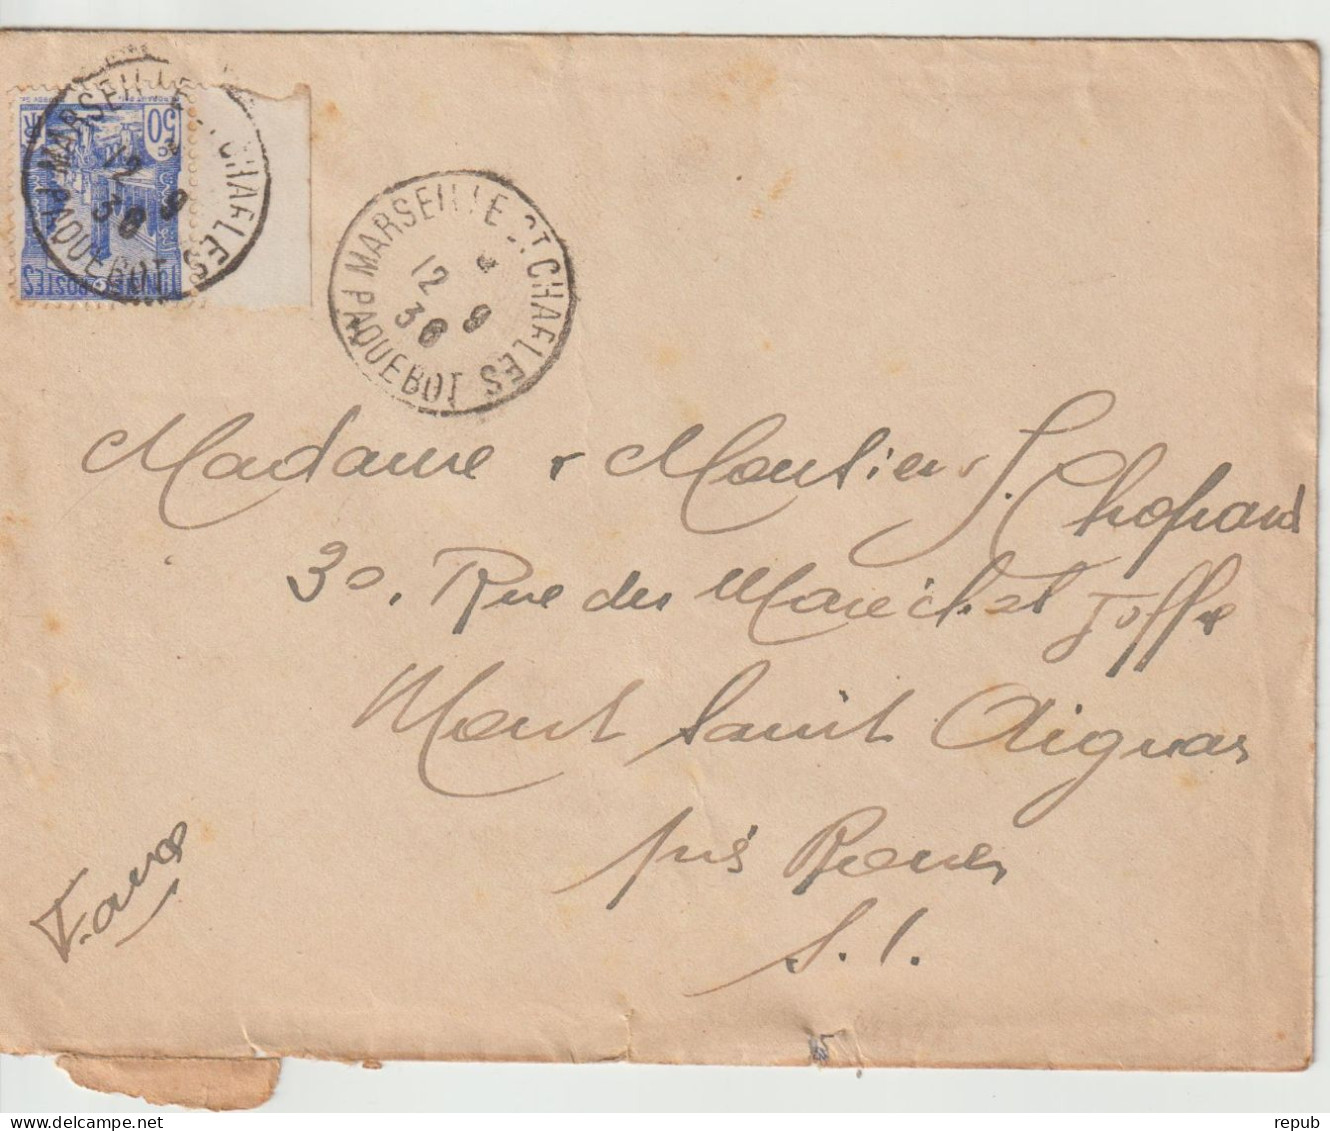 MARSEILLE ST CHARLES
12 9
36
PAQUEBOT
50c
POSTES
MARSEILLE ST CHARLES
12 9
36
PAQUEBOT
Madame & Monsieur J. Chopard
30, Rue du Maréchal Joffre
Mont Saint Aignan
près Rouen
S. I.
repub
repub.com